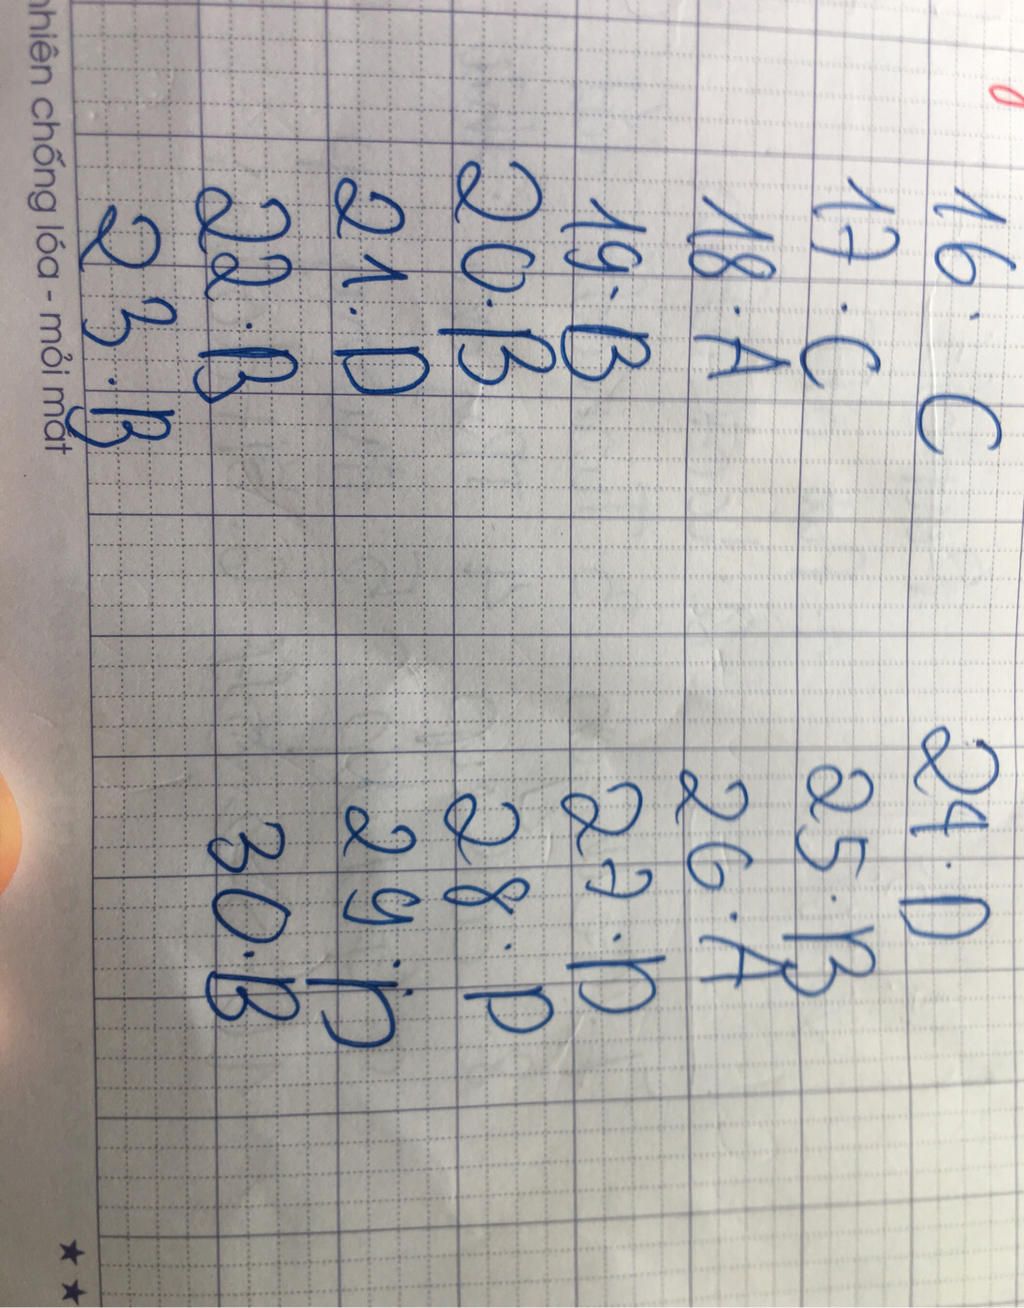 16. C
17. C
18. A
19. B
20. B
21. D
22. B
23. B
24. D
25. B
26. A
27. D
28. D
29. D
30. B
nhiên chống lóa - mỏi mắt